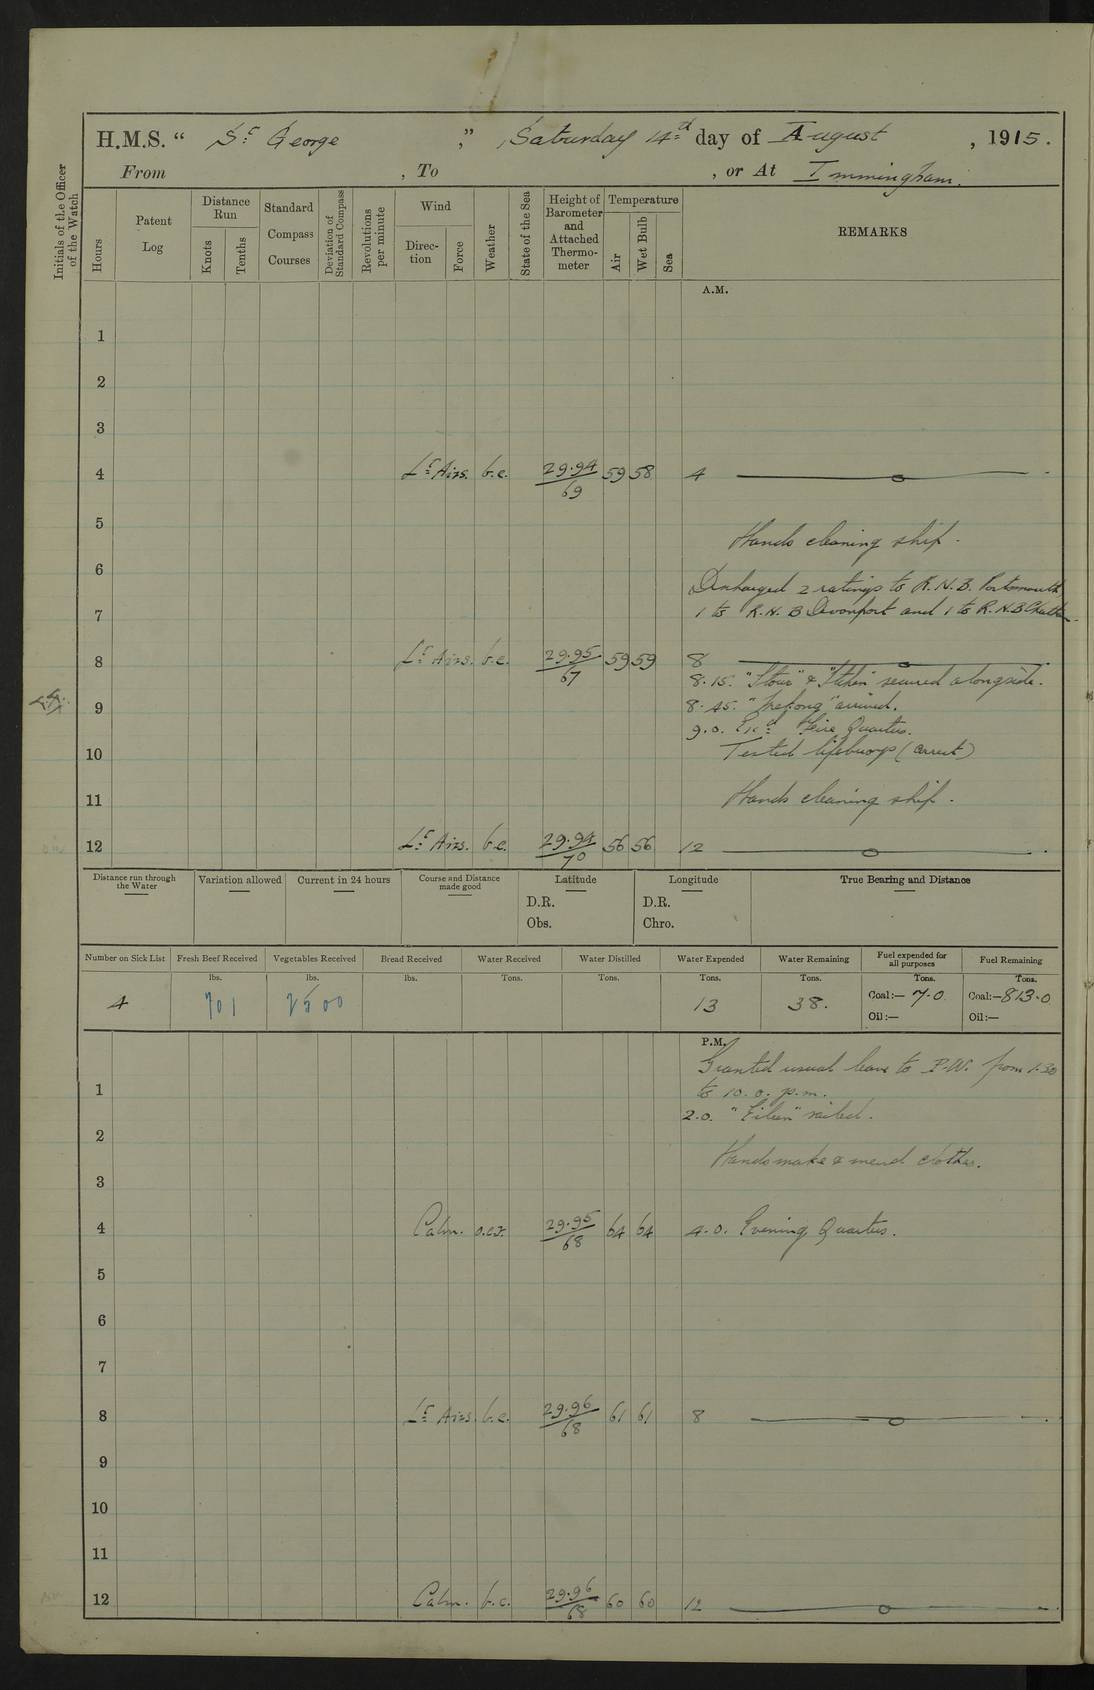 H.M.S. " St George ," Saturday 14th day of August , 1915.
From , To , or At Immingham.
Initials of the Officer of the Watch
Hours
Patent Log
Distance Run
Knots
Tenths
Standard Compass Courses
Deviation of Standard Compass
Revolutions per minute
Wind
Direc-tion
Force
Weather
State of the Sea
Height of Barometer and Attached Thermo-meter
Temperature
Air
Wet Bulb
Sea
REMARKS
A.M.
1
2
3
4 Lt Airs. b.c. 29.94/69 59 58 4
5
Hands cleaning ship.
6
Discharged 2 ratings to R.N.B. Portsmouth,
7
1 to R.N.B Devonport and 1 to R.N.B Chatham.
8 Lt Airs. b.c. 29.95/67 59 59 8
8.15. "Stour" & secured alongside.
9
8.45. arrived.
9.0. Exd Fire Quarters.
10
Tested lifebuoys (correct)
11
Hands cleaning ship.
12 Lt Airs. b.c. 29.94/70 56 56 12
Distance run through the Water
Variation allowed
Current in 24 hours
Course and Distance made good
Latitude
D.R.
Obs.
Longitude
D.R.
Chro.
True Bearing and Distance
Number on Sick List
Fresh Beef Received
Vegetables Received
Bread Received
Water Received
Water Distilled
Water Expended
Water Remaining
Fuel expended for all purposes
Fuel Remaining
lbs. lbs. lbs. Tons. Tons. Tons. Tons. Tons. Tons.
4 701 2500 13 38. Coal:— 7.0 Coal:—813.0
Oil:— Oil:—
P.M.
Granted usual leave to P.W. from 1.30
1
to 10.0. p.m.
2.0. "Eileen" sailed.
2
Hands make & mend clothes.
3
4 Calm. o.c.r. 29.95/68 64 64 4.0. Evening Quarters.
5
6
7
8 Lt Airs. b.c. 29.96/68 61 61 8
9
10
11
12 Calm. b.c. 29.96/68 60 60 12